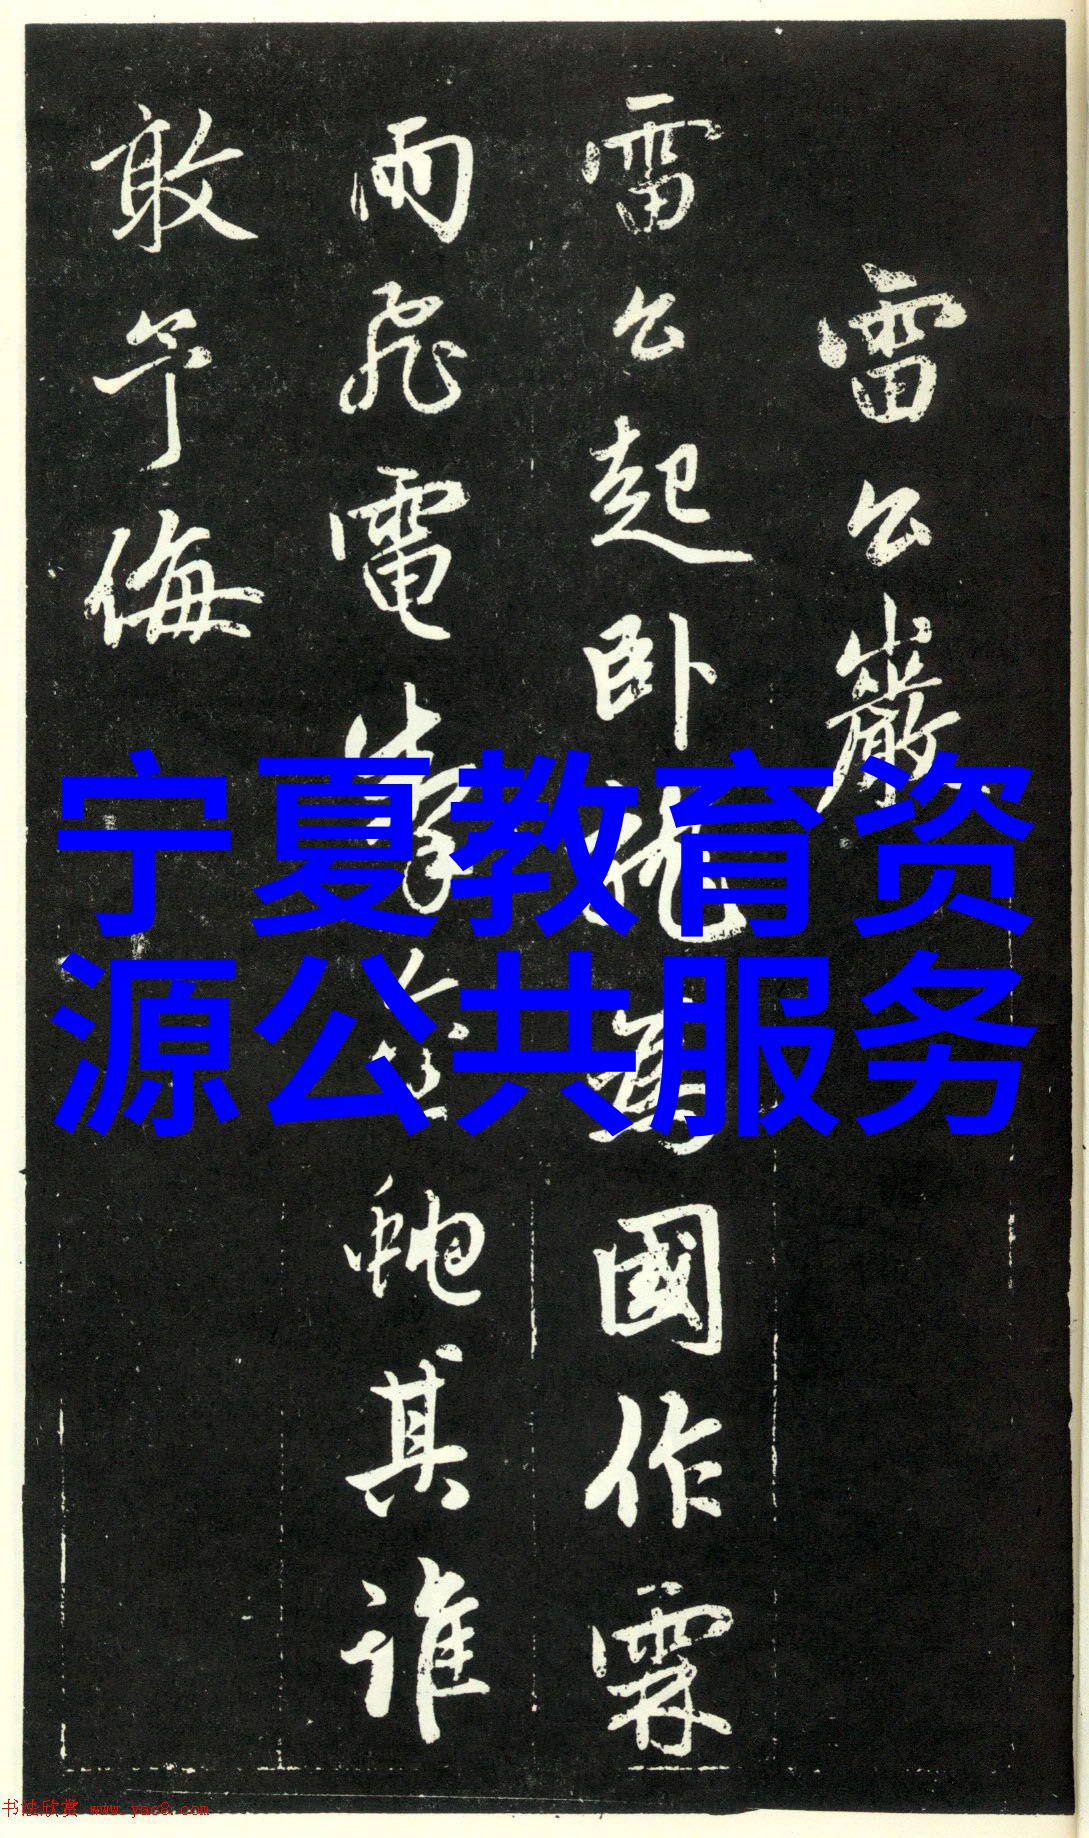 雷公巖
雷公起卧龍為國作霖
雨飛電掣金虵其誰
敢予侮
宁夏教育资
源公共服务
书法欣赏 www.yac8.com